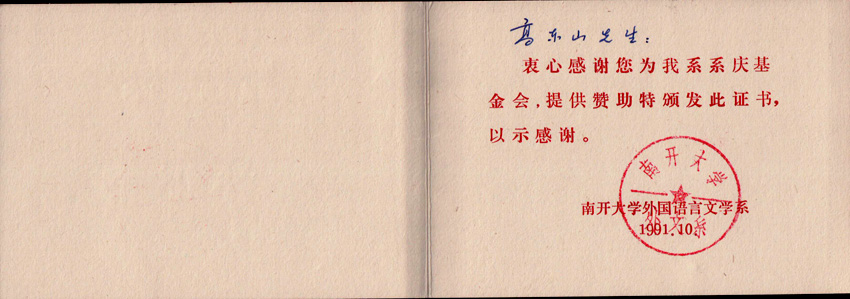 高东山先生：
衷心感谢您为我系系庆基
金会，提供赞助特颁发此证书，
以示感谢。
南开大学
外文系
南开大学外国语言文学系
1991.10.